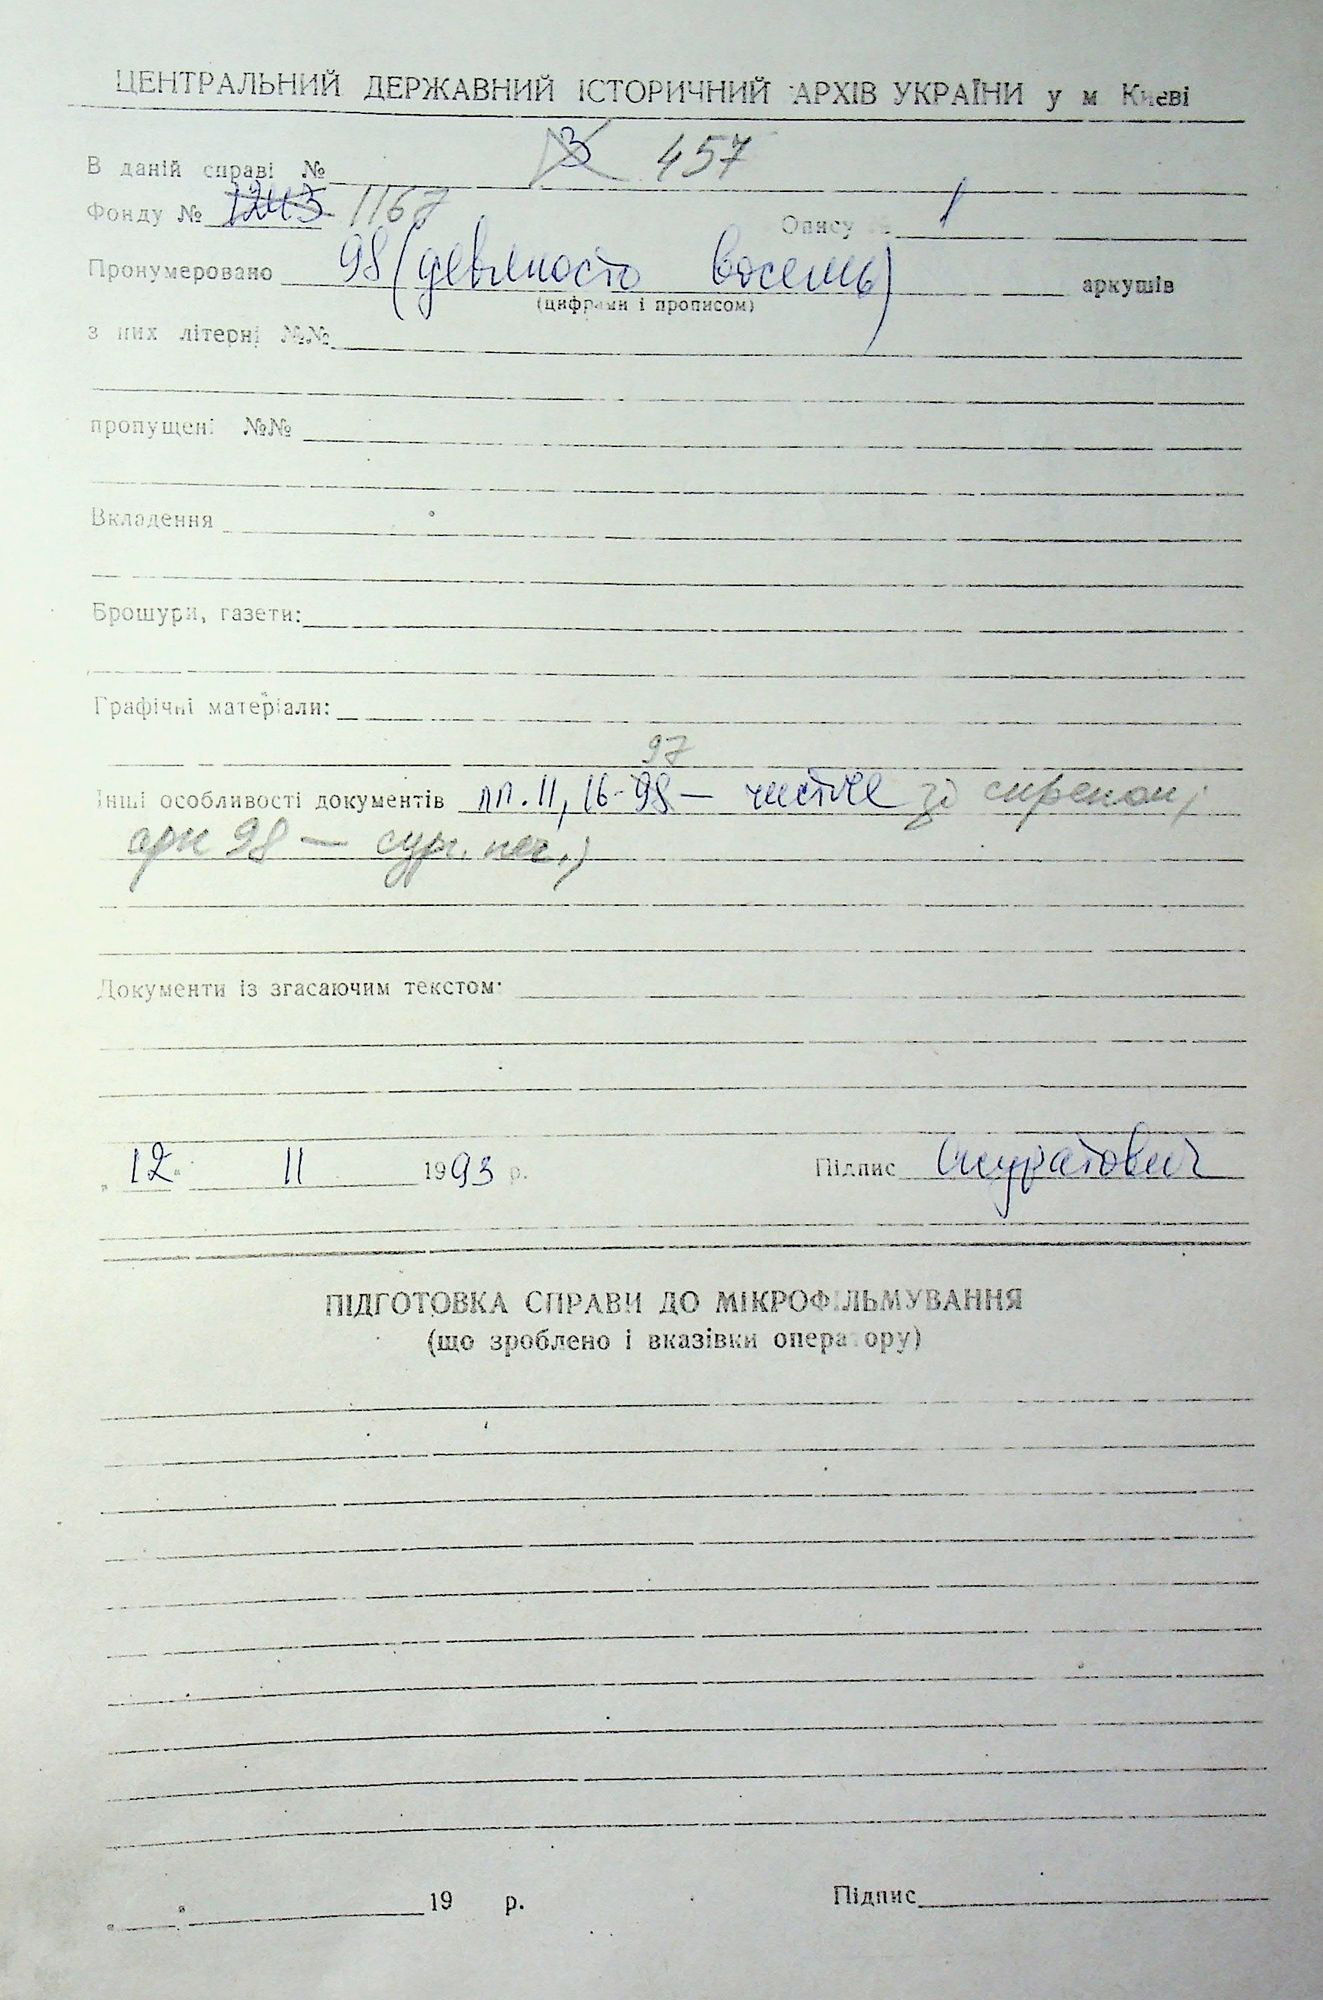 ЦЕНТРАЛЬНИЙ ДЕРЖАВНИЙ ІСТОРИЧНИЙ АРХІВ УКРАЇНИ у м Києві
В даній справі № 3 457
Фонду № 1243 1167 Опису № 1
Пронумеровано 98 (девяносто восемь) аркушів
(цифрами і прописом)
з них літерні №№
пропущені №№
Вкладення
Брошури, газети:
Графічні матеріали:
97
Інші особливості документів лл. 11, 16-98 — чистые зі скрепою;
арк 98 — сург. печ.;
Документи із згасаючим текстом:
„ 12 " 11 1993 р. Підпис
ПІДГОТОВКА СПРАВИ ДО МІКРОФІЛЬМУВАННЯ
(що зроблено і вказівки оператору)
19 р. Підпис